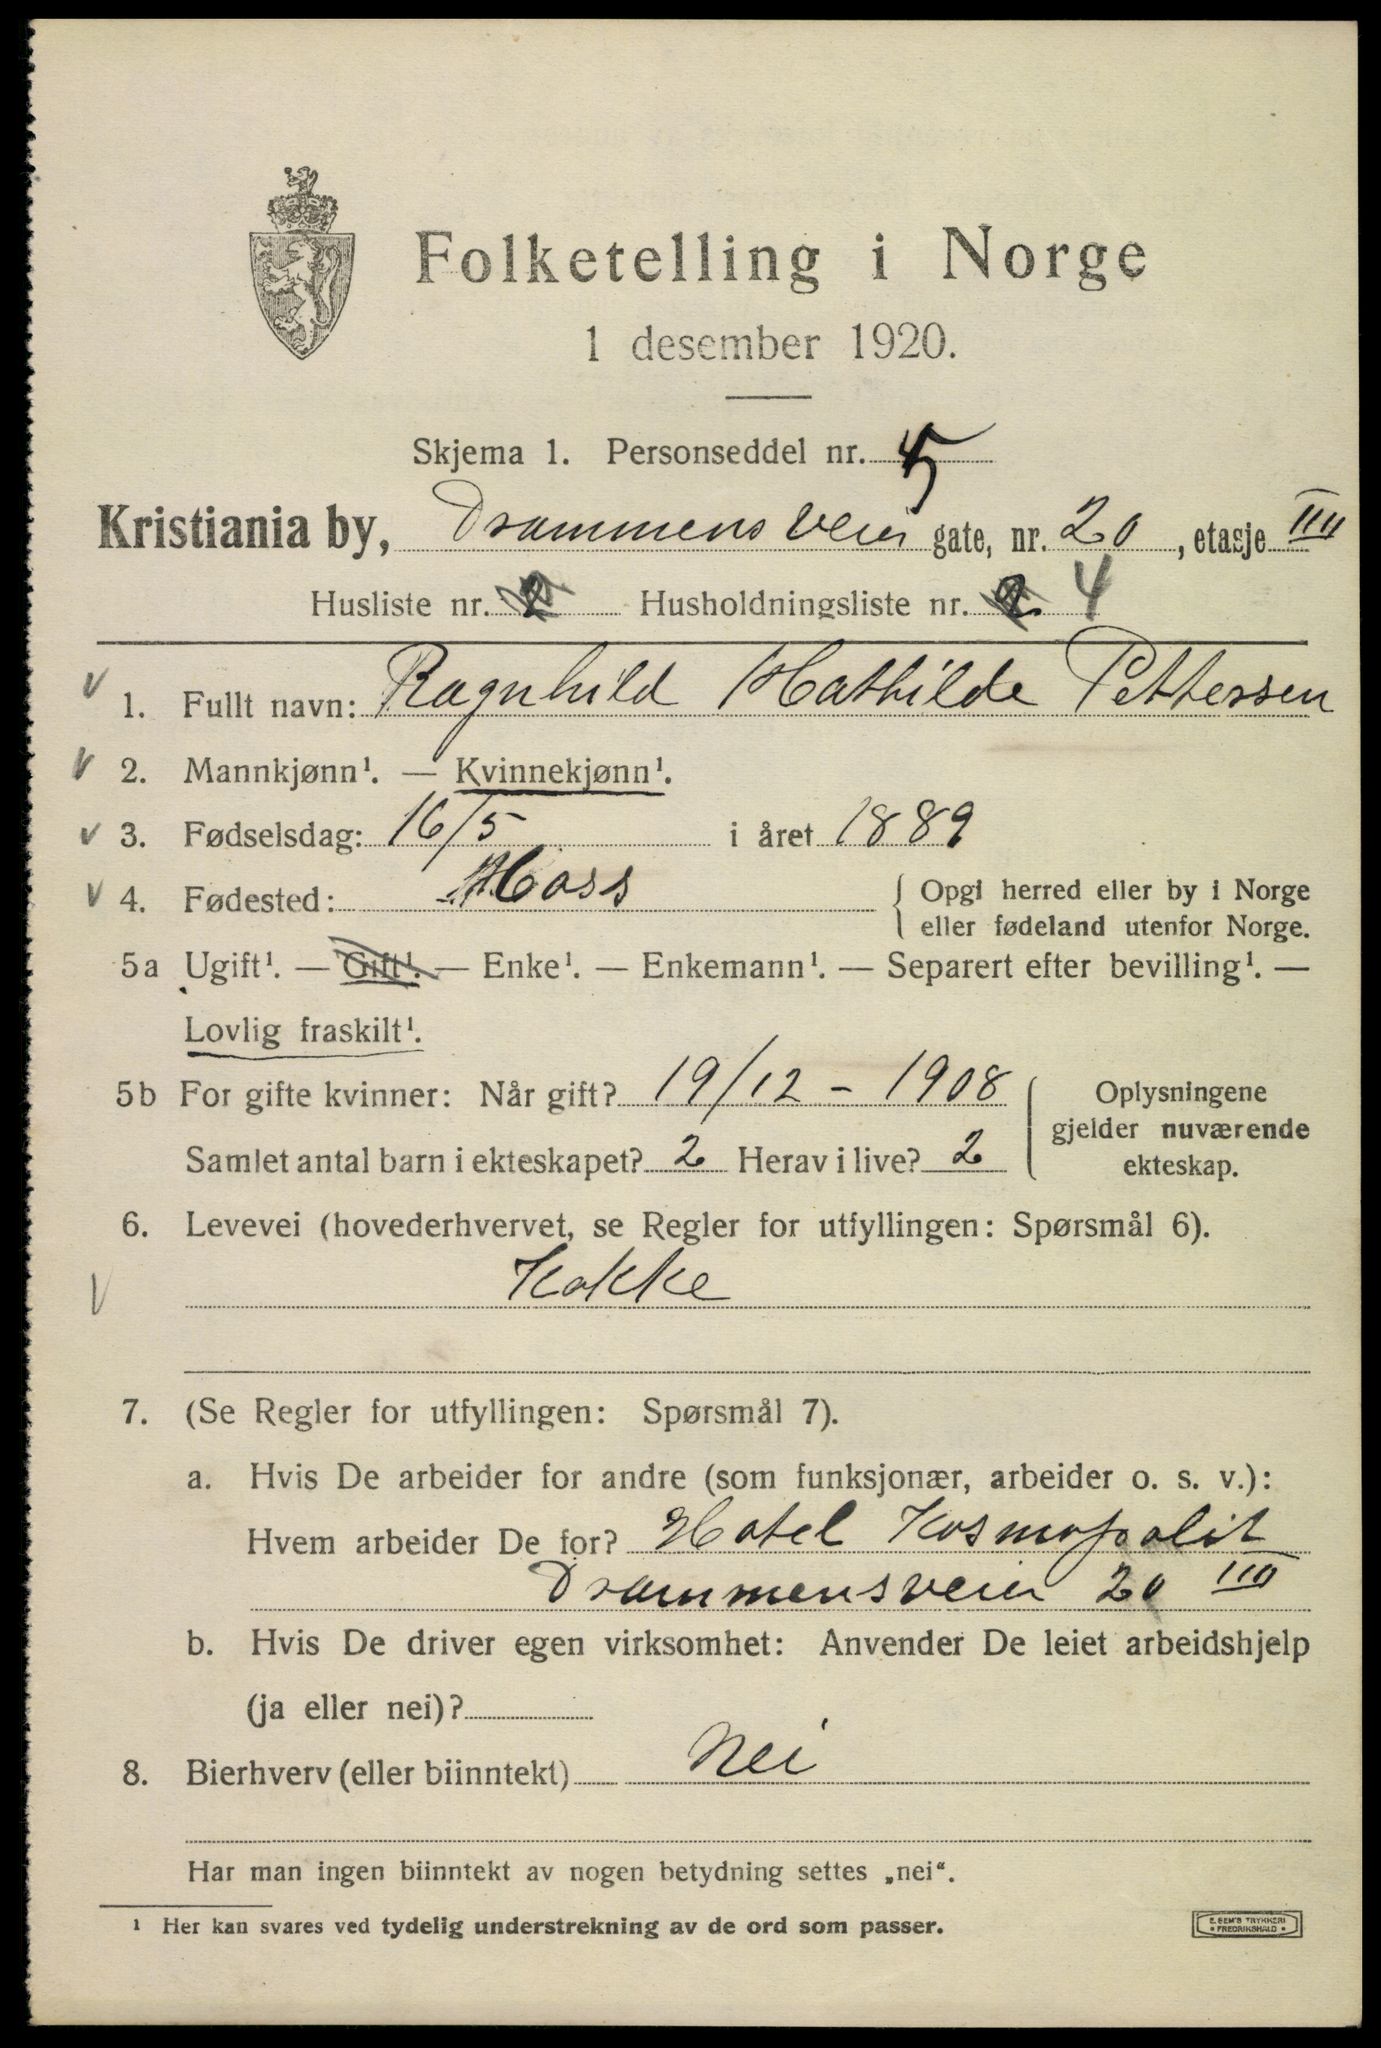 Folketelling i Norge
1 desember 1920.
Skjema 1. Personseddel nr. 5
Kristiania by, Drammensveien gate, nr. 20, etasje III
Husliste nr. 2 Husholdningsliste nr. 2 4
1. Fullt navn: Ragnhild Mathilde Pettersen
2. Mannkjønn¹. — Kvinnekjønn¹.
3. Fødselsdag: 16/5 i året 1889
4. Fødested: Moss { Opgi herred eller by i Norge
eller fødeland utenfor Norge.
5a Ugift¹. — Gift¹. — Enke¹. — Enkemann¹. — Separert efter bevilling¹. —
Lovlig fraskilt¹.
5b For gifte kvinner: Når gift? 19/12 - 1908
Samlet antal barn i ekteskapet? 2 Herav i live? 2
Oplysningene
gjelder nuværende
ekteskap.
6. Levevei (hovederhvervet, se Regler for utfyllingen: Spørsmål 6).
Kokke
7. (Se Regler for utfyllingen: Spørsmål 7).
a. Hvis De arbeider for andre (som funksjonær, arbeider o. s. v.):
Hvem arbeider De for? Hotel Kosmopolit
Drammensveien 20 III
b. Hvis De driver egen virksomhet: Anvender De leiet arbeidshjelp
(ja eller nei)?
8. Bierhverv (eller biinntekt) Nei
Har man ingen biinntekt av nogen betydning settes „nei“.
¹ Her kan svares ved tydelig understrekning av de ord som passer.
E. SEM'S TRYKKERI
• FREDRIKSHALD •